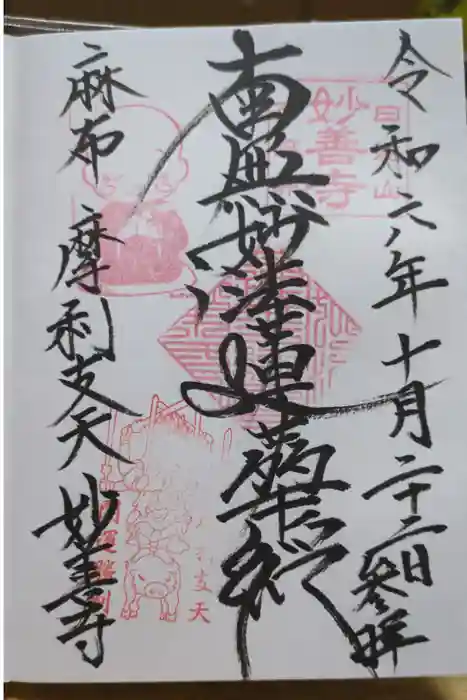 令和六年十月二十二日参拝
南無妙法蓮華経
麻布 摩利支天 妙善寺
妙善寺
開運勝利
支天